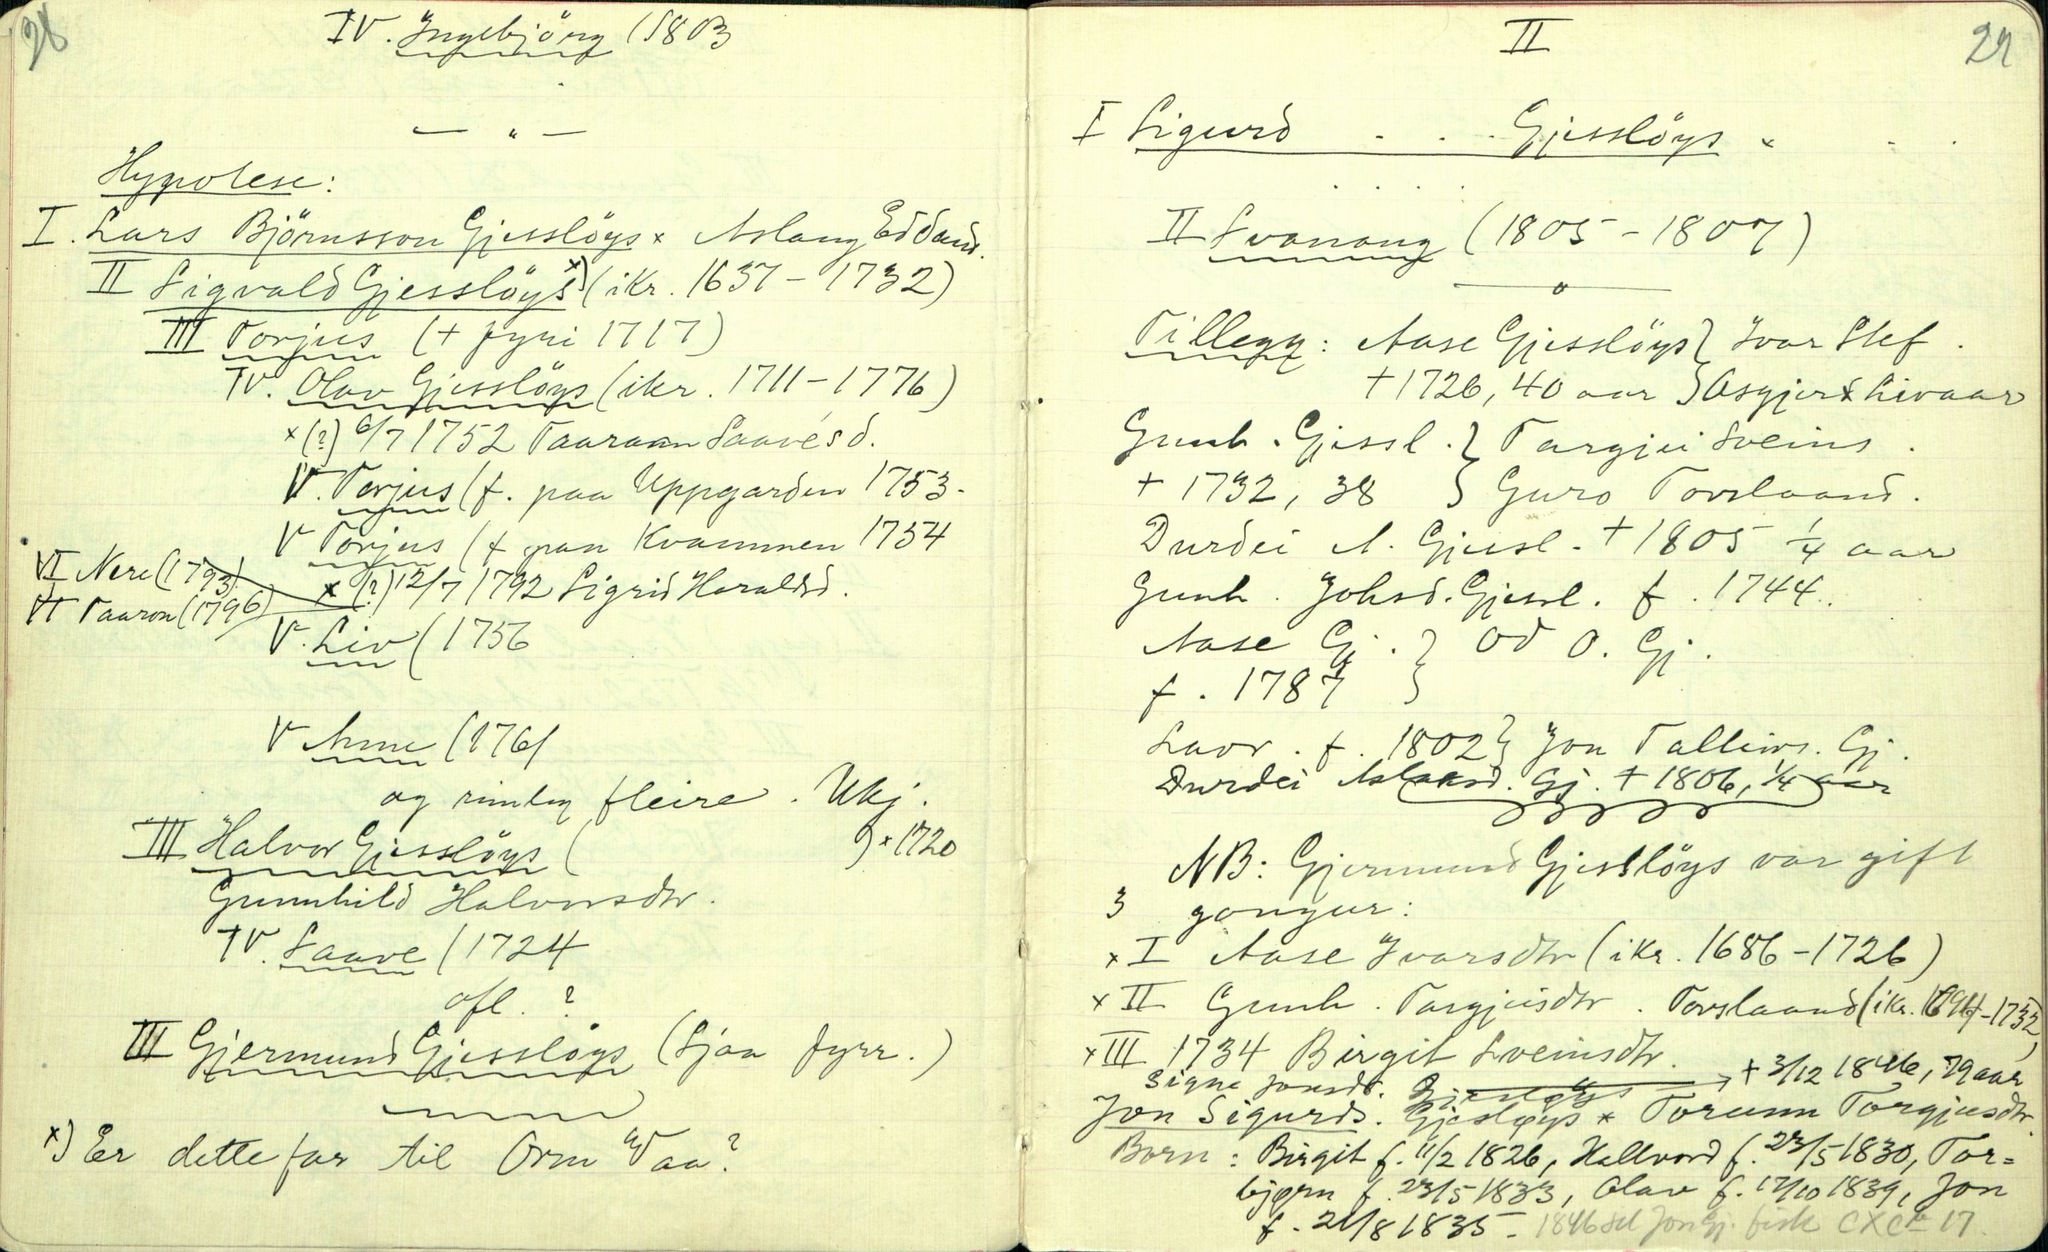 28
IV. Ingebjörg (1803
— " —
Hypotese:
I. Lars Björnsson Gjesslöys × Aslaug Eddand.
II Sigvald Gjesslöys ×) (ikr. 1637 - 1732)
III Torjus (+ fyri 1717)
IV. Olav Gjesslöys (ikr. 1711 - 1776)
×(?) 6/7 1752 Taaraan Saavesd.
V. Torjus (f. paa Uppgarden 1753.
V Torjus (f paa Kvammen 1754
VI Nere (1793)
× (?) 12/7 1792 Sigrid Haraldsd.
VI Taaron (1796)
V. Liv (1756
V Anne (1761
og rimleg fleire. Ukj.
III Halvor Gjesslöys ( ) × 1720
Gunnhild Halvorsdtr.
IV. Saave (1724
ofl. ?
III Gjermund Gjesslöys (Sjaa fyrr.)
×) Er dette far til Orm Vaa?
II
29
I Sigurd . . . Gjesslöys × . .
. . . .
II Svanaug (1805 - 1807)
Tillegg: Aase Gjesslöys } Ivar Stef.
+ 1726, 40 aar } Asgjerd × Livaar
Gunh. Gjessl. } Targjei Sveins.
+ 1732, 38 } Guro Tovslaand.
Durdei A. Gjessl. + 1805 1/4 aar
Gunh. Johsd. Gjessl. f. 1744.
Aase Gj. } Od O. Gj.
f. 1787 }
Lavr. f. 1802 } Jon Tallivs. Gj.
Durdei Aslaksd. Gj. + 1806, 1/4 aar
NB: Gjermund Gjesslöys var gift
3 gongur:
× I Aase Ivarsdtr (ikr. 1686 - 1726)
× II Gunh. Targjeisdtr. Tovslaand (ikr. 1694 - 1732)
× III 1734 Birgit Sveinsdtr.
Signe Jonsdt. Gjesløys → + 3/12 1846, 79 aar
Jon Sigurds. Gjesløys × Torunn Torgjusdtr.
Born: Birgit f. 11/2 1826, Hallvord f. 23/5 1830, Tor=
bjørn f. 23/5 1833, Olav f. 17/10 1839, Jon
f. 21/8 1835 - 1846 sel Jon Gj. fisk